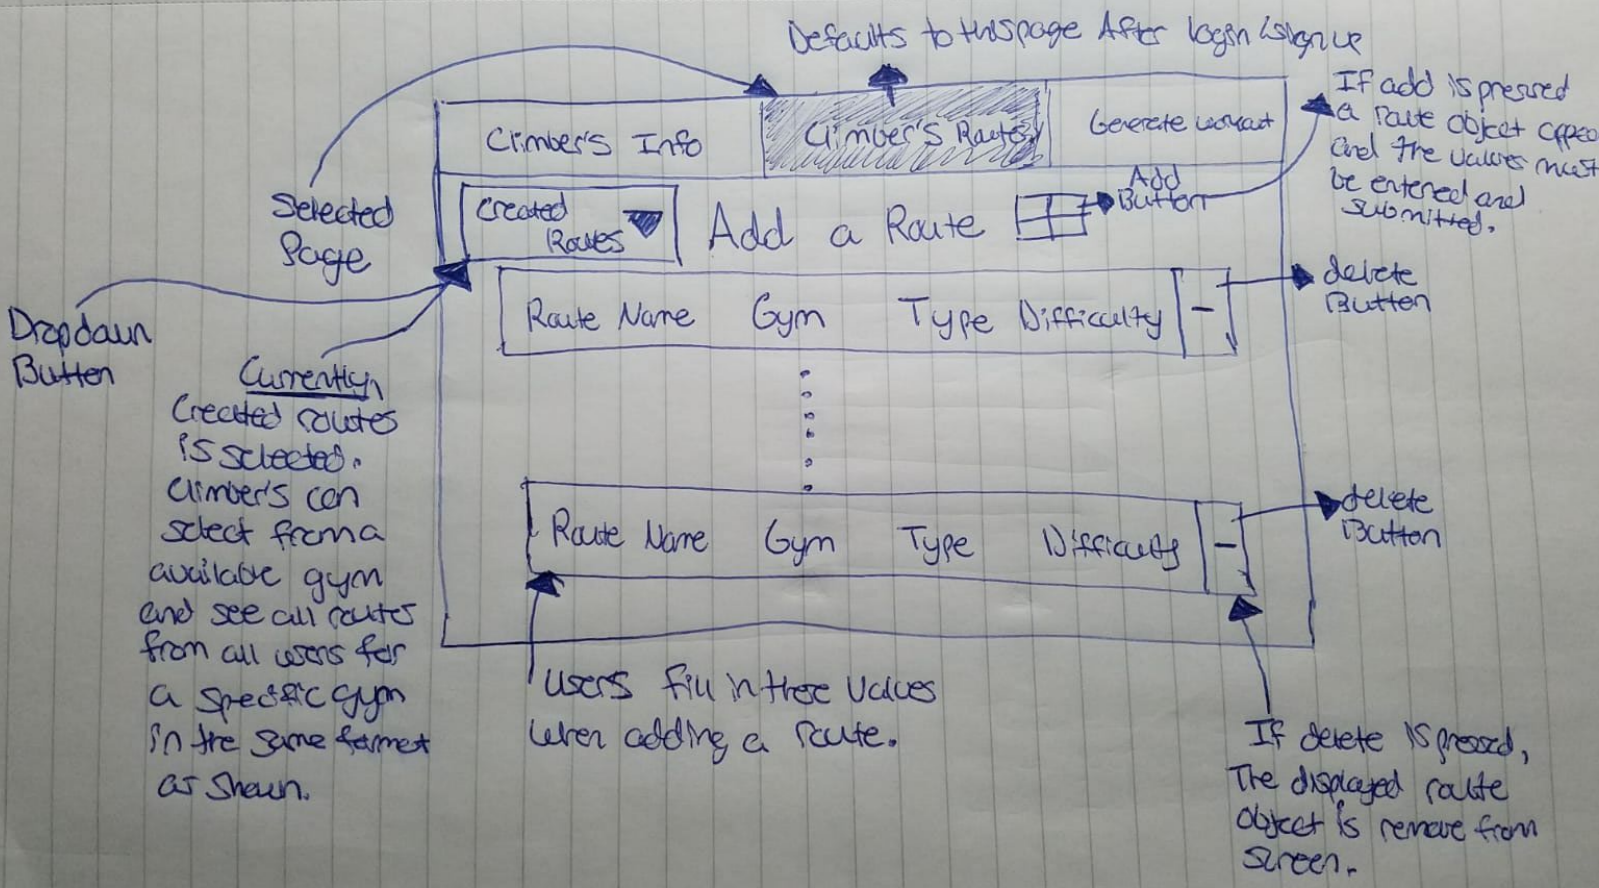 Defaults to this page After login/signup
Climber's Info
Climber's Routes
Generate workout
If add is pressed
a route object appea
and the values must
be entered and
submitted.
Selected
Page
Created
Routes
Add a Route
Add
Button
delete
Button
Dropdown
Button
Route Name Gym Type Difficulty -
Currently,
Created routes
is selected.
Climber's can
select from a
available gym
and see all routes
from all users for
a specific gym
in the same format
as shown.
Route Name Gym Type Difficulty -
delete
Button
Users fill in these values
when adding a route.
If delete is pressed,
The displayed route
object is remove from
screen.